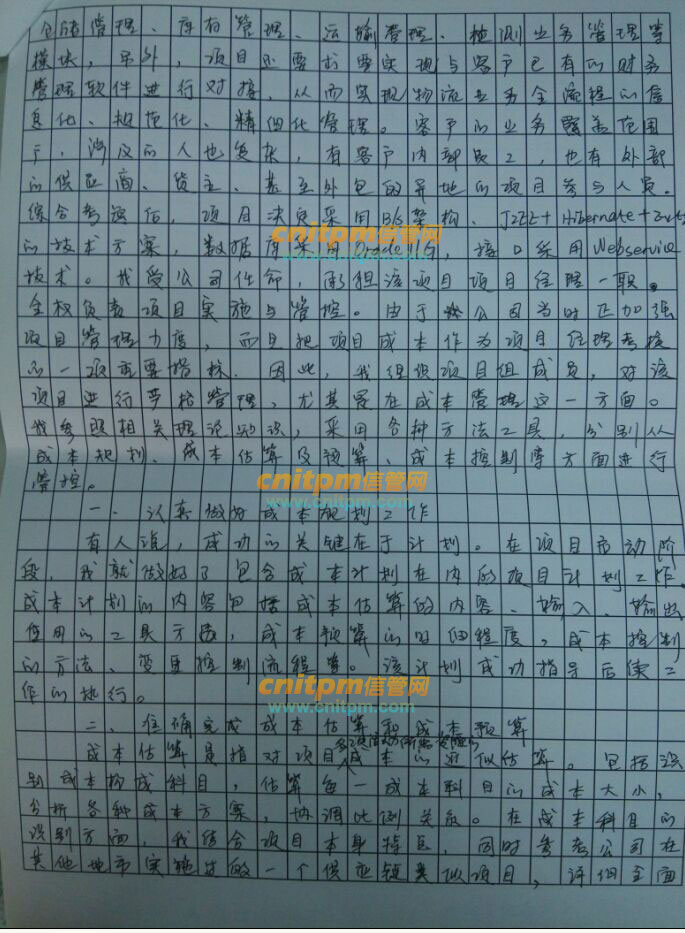 仓储管理、库存管理、运输管理、检测业务管理等
模块，另外，项目还要求要实现与客户已有的财务
管理软件进行对接，从而实现物流业务全流程的信
息化、规范化、精细化管理。客户的业务覆盖范围
广，涉及的人也复杂，有客户内部员工，也有外部
的供应商、货主、甚至外包的异地的项目参与人员。
综合考虑后，项目决定采用B/S架构、J2EE+Hibernate+
的技术方案，数据库采用Oracle 11G，接口采用Webservice
技术。我受公司任命，承担该项目项目经理一职。
全权负责项目实施与管控。由于公司当时正加强
项目管理力度，而且把项目成本作为项目经理考核
的一项重要指标。因此，我组织项目组成员，对该
项目进行严格管理，尤其是在成本管理这一方面。
我参照相关理论知识，采用各种方法工具，分别从
成本规划、成本估算及预算、成本控制等方面进行
管控。
一、认真做好成本规划工作
有人说，成功的关键在于计划。在项目启动阶
段，我就做好了包含成本计划在内的项目计划工作。
成本计划的内容包括成本估算的内容、输入、输出
使用的工具方法，成本预算的明细程度，成本控制
的方法、变更控制流程等。该计划成功指导后续工
作的执行。
二、准确完成成本估算和成本预算
成本估算是指对项目各项活动所需资源的成本的近似估算。包括识
别成本构成科目，估算每一成本科目的成本大小，
分析各种成本方案，协调比例关系。在成本科目的
识别方面，我结合项目本身特点，同时参考公司在
其他地市实施过的一个供应链类似项目，详细全面
cnitpm信管网
www.cnitpm.com
cnitpm信管网
www.cnitpm.com
cnitpm信管网
www.cnitpm.com